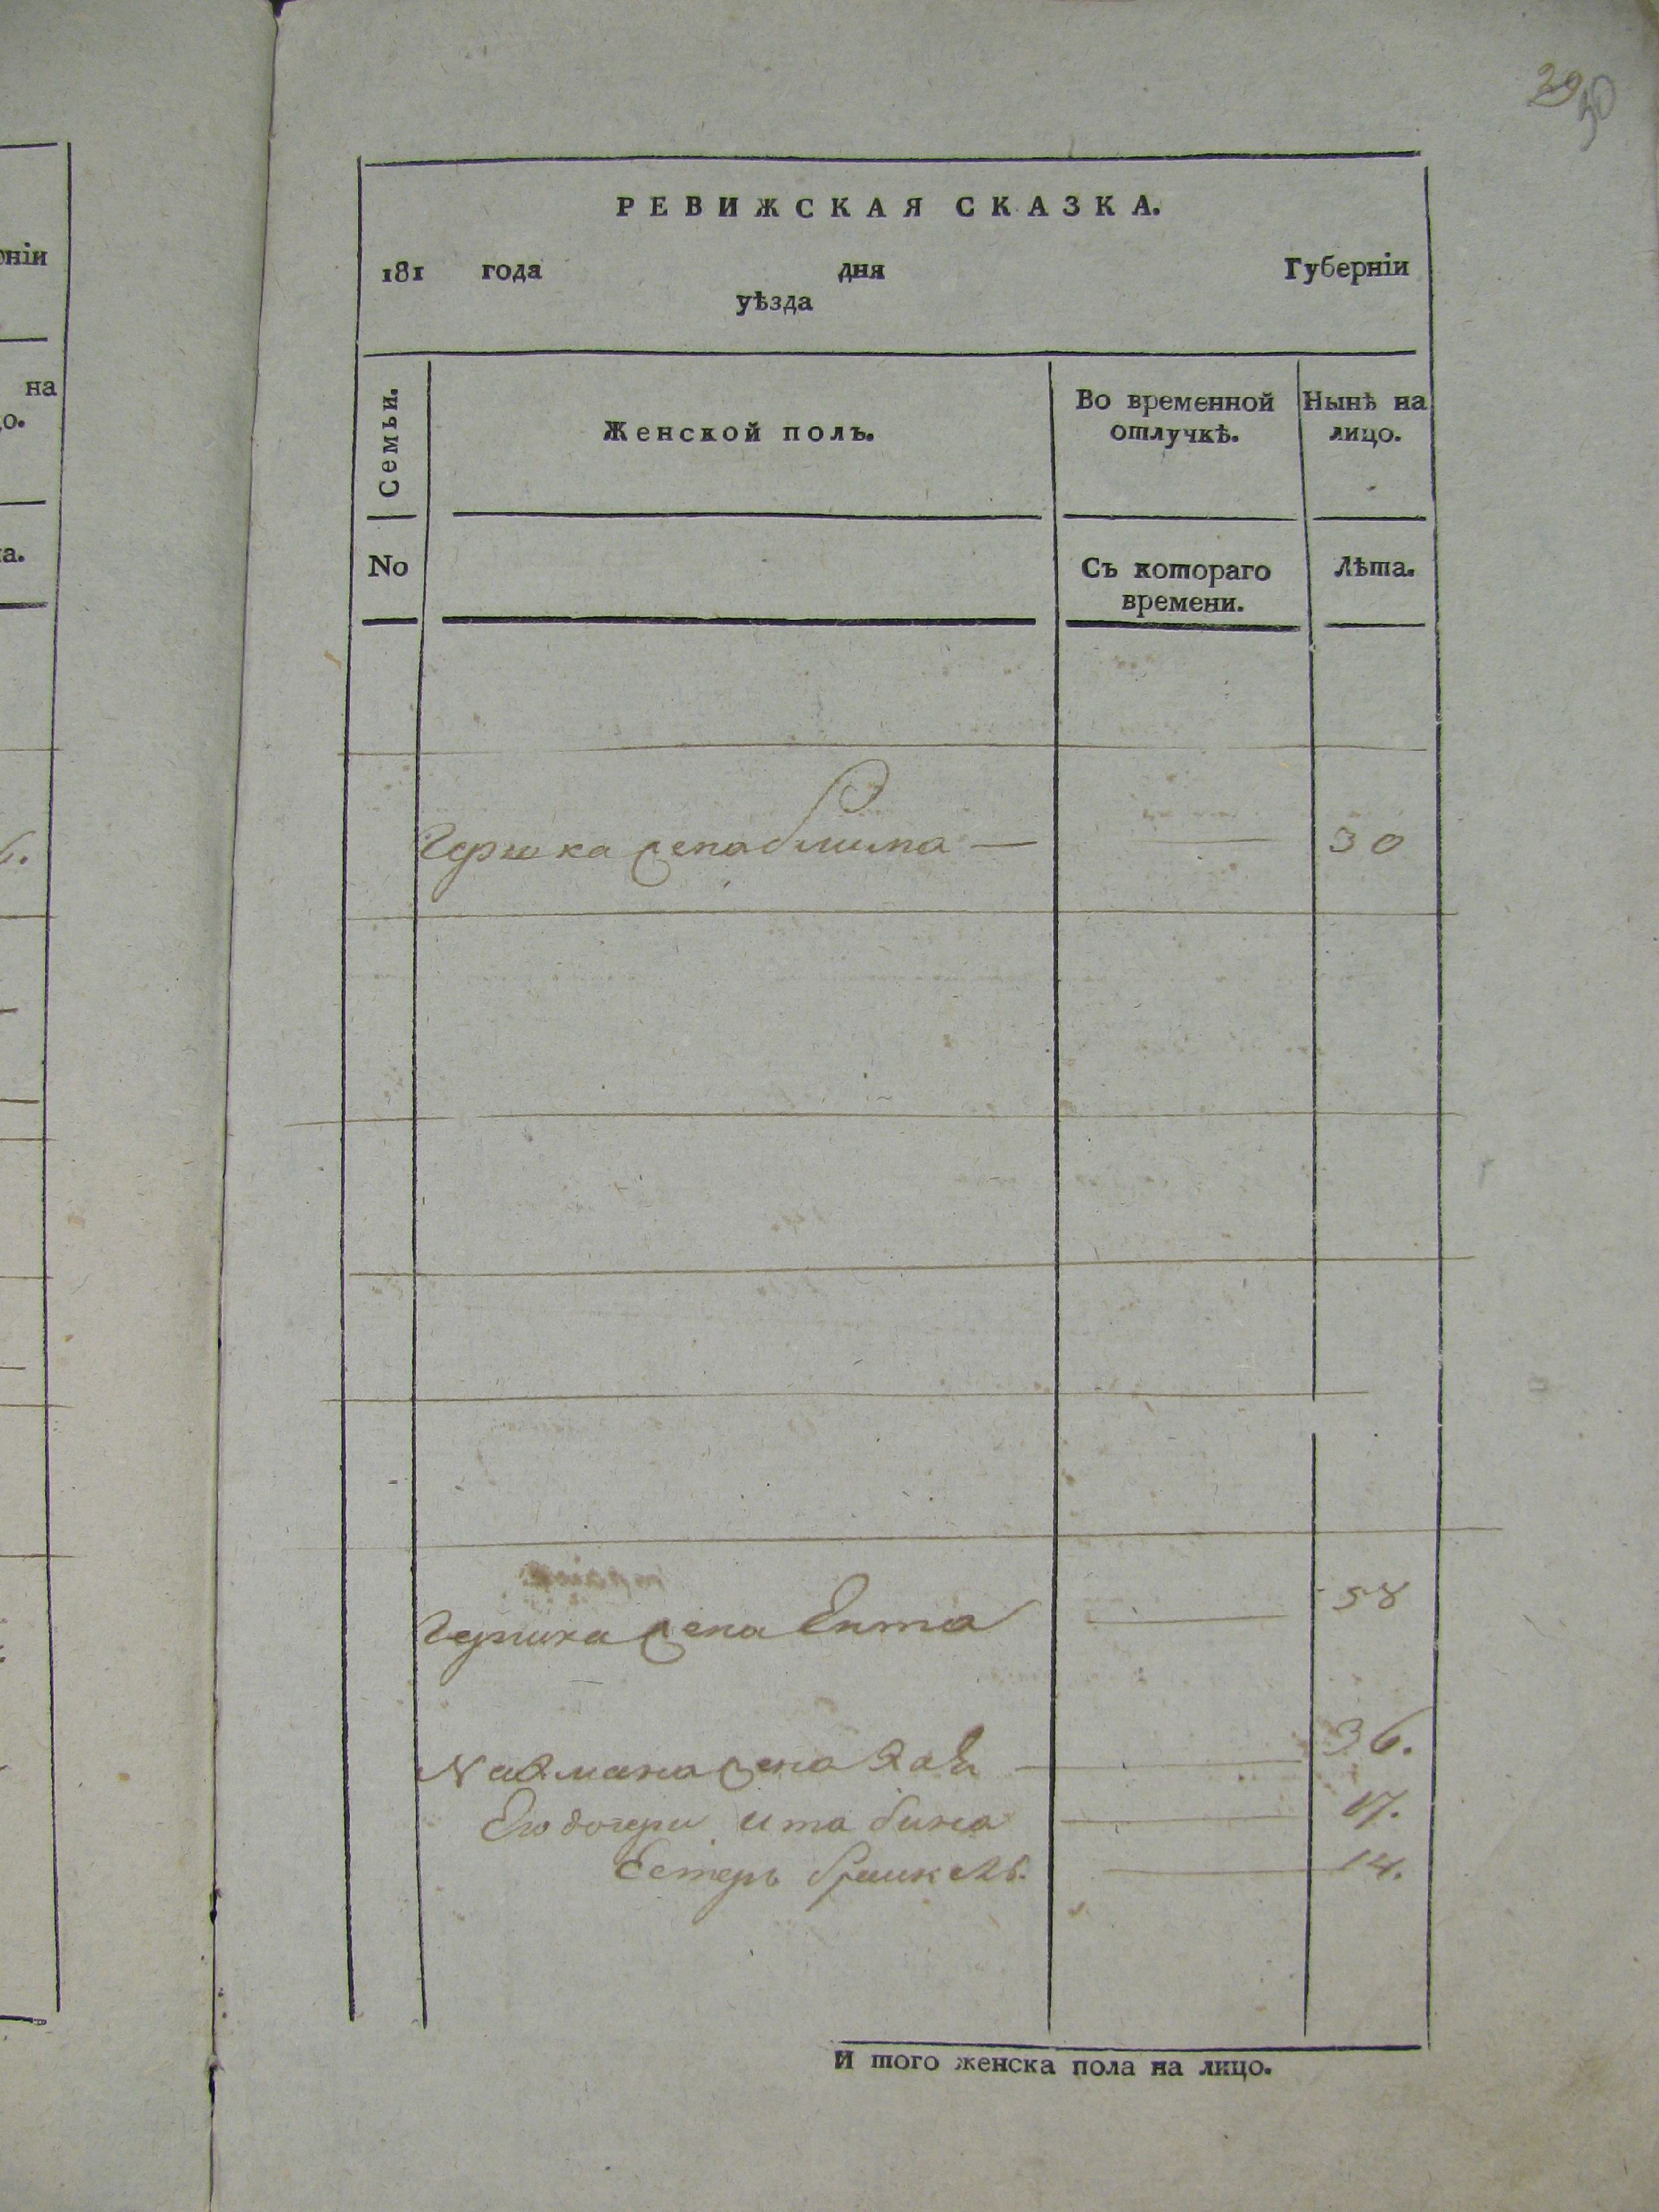 29 30
РЕВИЖСКАЯ СКАЗКА.
181 года дня Губерніи
уѣзда
Семьи.
Женской полъ.
Во временной отлучкѣ.
Нынѣ на лицо.
No
Съ котораго времени.
Лѣта.
Гершка жена блима — — 30
жена Ента — 58
жена Хая — 36.
Его дочери ита бина — 17.
Естеръ — 14.
И того женска пола на лицо.
ніи
на
о.
а.
6.